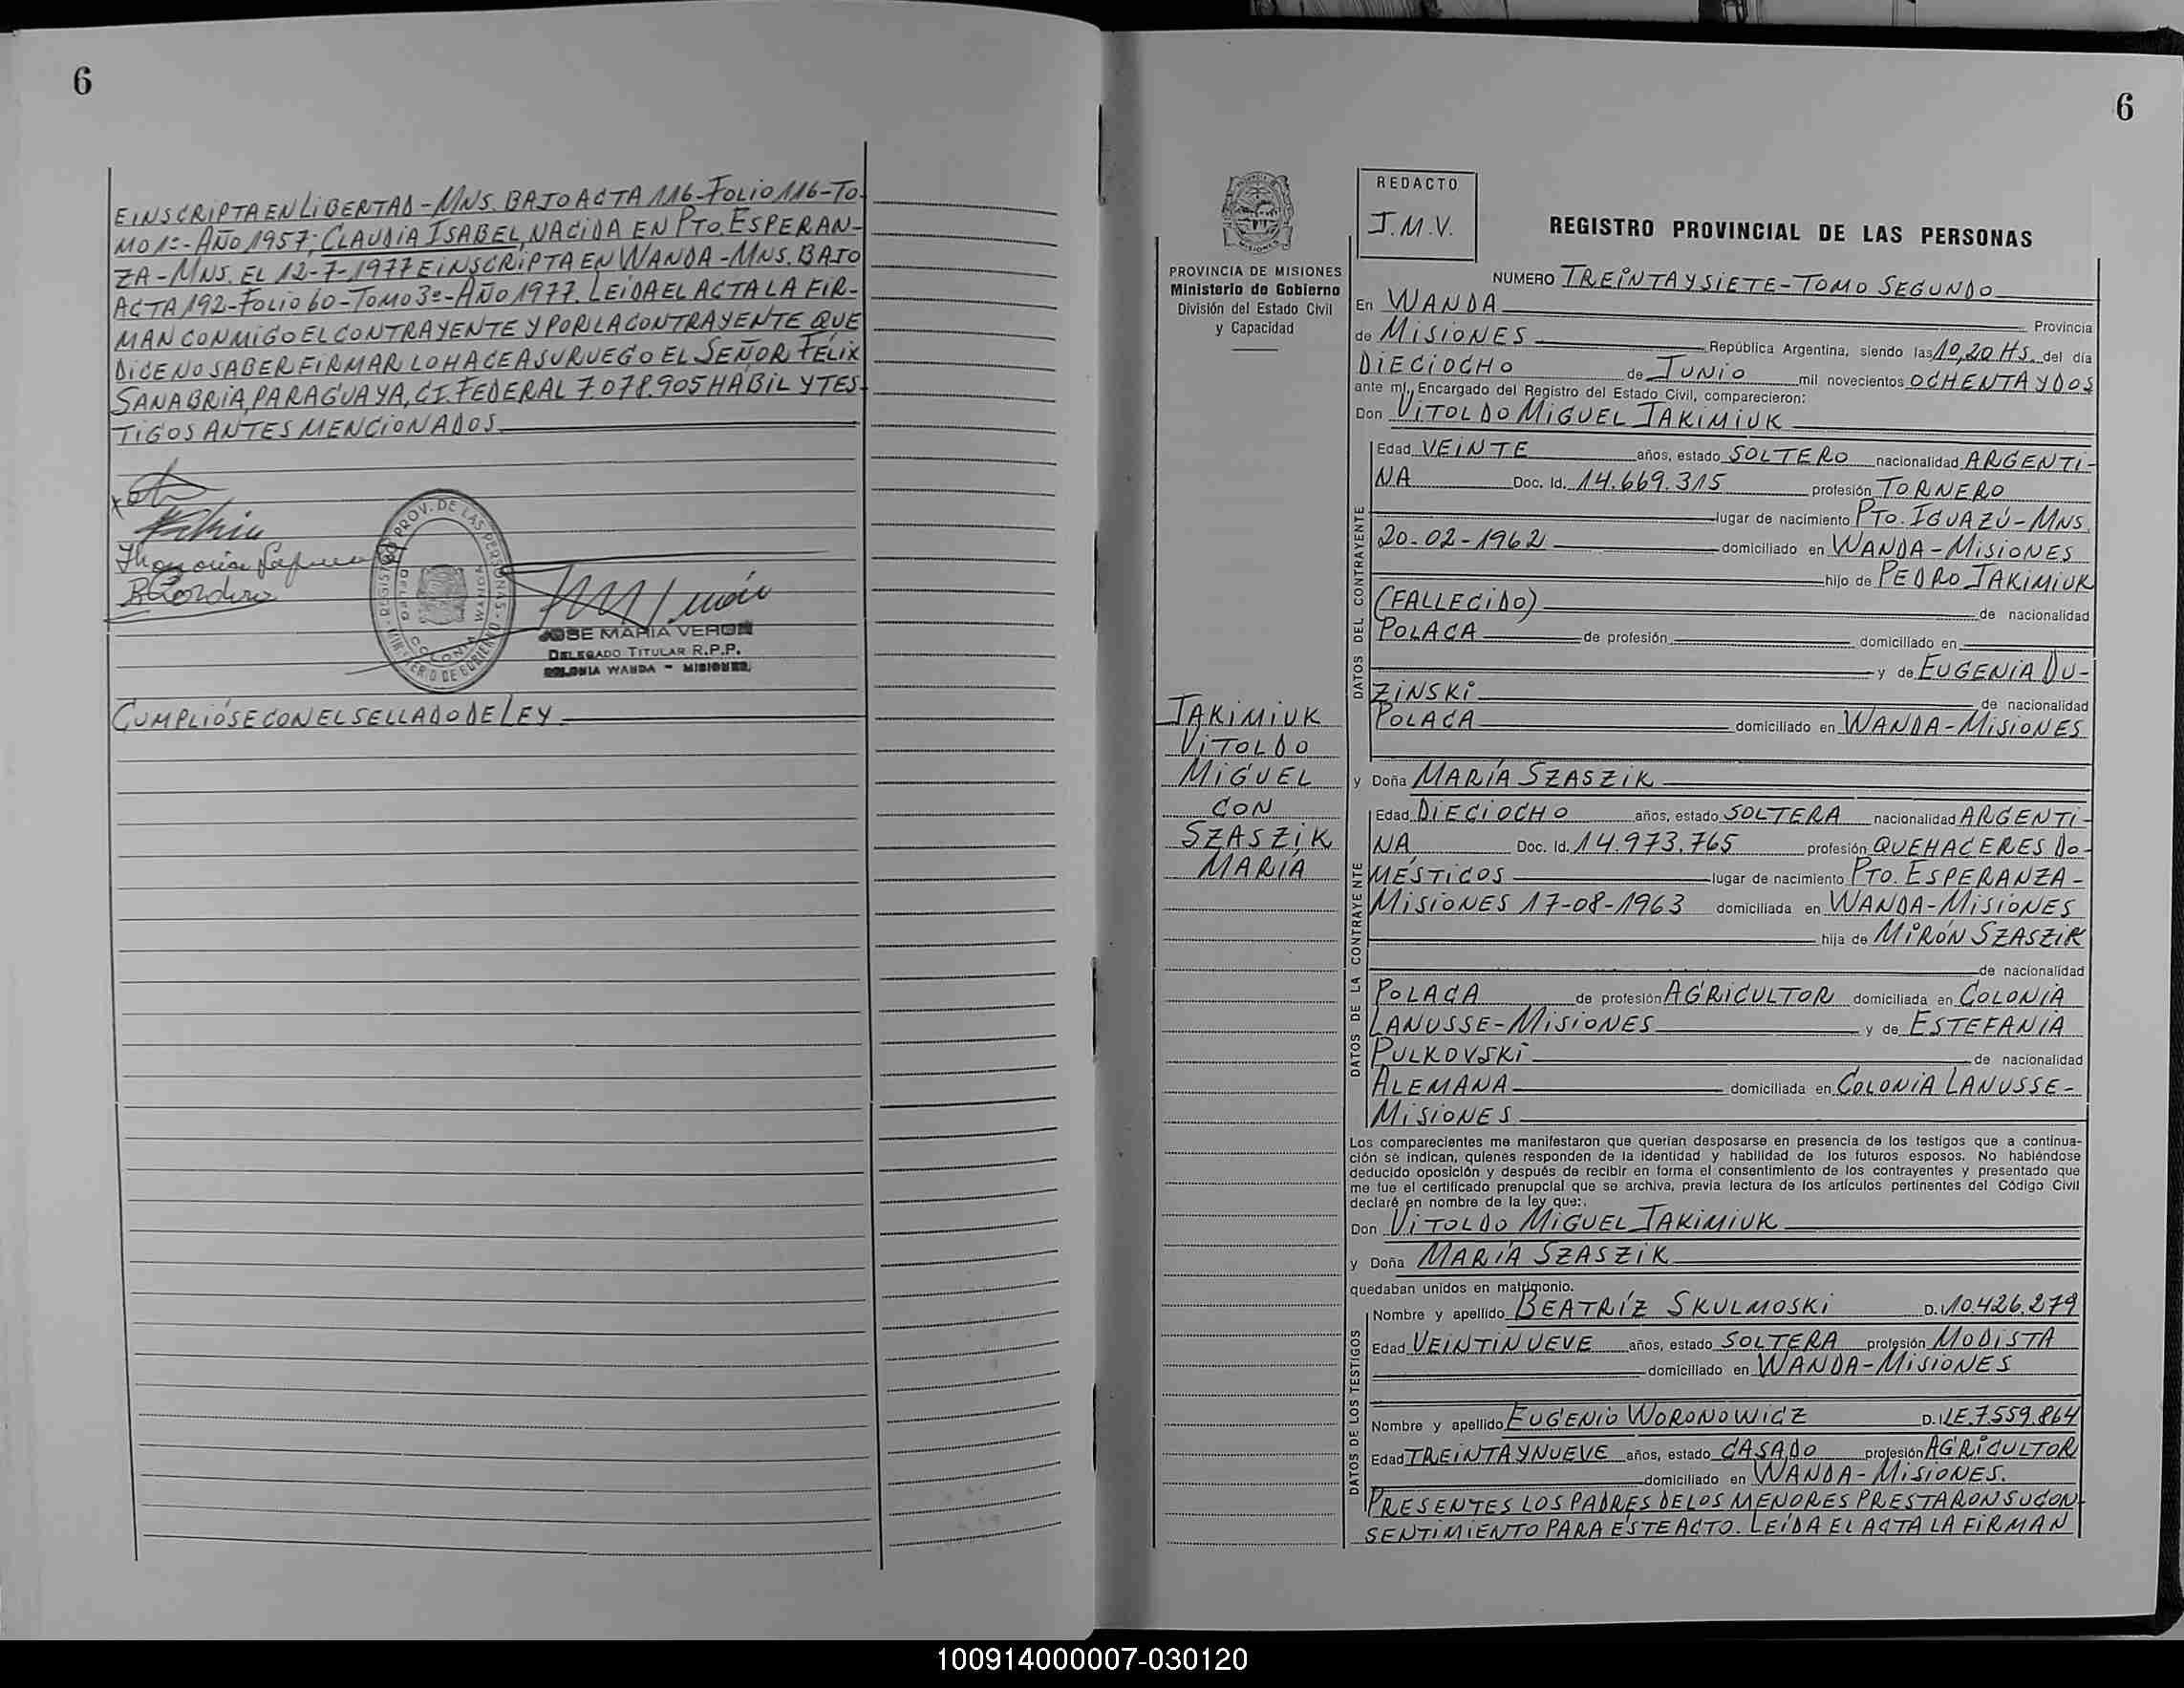 6
E INSCRIPTA EN LIBERTAD-MNS. BAJO ACTA 116-FOLIO 116-TO-
MO 1º-AÑO 1957; CLAUDIA ISABEL, NACIDA EN PTO. ESPERAN-
ZA-MNS. EL 12-7-1977 E INSCRIPTA EN WANDA-MNS. BAJO
ACTA 192-FOLIO 60-TOMO 3º-AÑO 1977. LEIDA EL ACTA LA FIR-
MAN CONMIGO EL CONTRAYENTE Y POR LA CONTRAYENTE QUE
DICE NO SABER FIRMAR LO HACE A SU RUEGO EL SEÑOR FÉLIX
SANABRIA, PARAGUAYA, CI. FEDERAL 7.078.905 HÁBIL Y TES-
TIGOS ANTES MENCIONADOS
REGISTRO PROV. DE LAS PERSONAS
MINISTERIO DE GOBIERNO
COLONIA WANDA
JOSE MARIA VERON
DELEGADO TITULAR R.P.P.
COLONIA WANDA - MISIONES
CUMPLIÓSE CON EL SELLADO DE LEY
6
PROVINCIA DE MISIONES
Ministerio de Gobierno
División del Estado Civil
y Capacidad
JAKIMIUK
VITOLDO
MIGUEL
CON
SZASZIK
MARÍA
REDACTO
J.M.V.
REGISTRO PROVINCIAL DE LAS PERSONAS
NUMERO TREINTA Y SIETE-TOMO SEGUNDO
En WANDA Provincia
de MISIONES República Argentina, siendo las 10,20 HS. del día
DIECIOCHO de JUNIO mil novecientos OCHENTA Y DOS
ante mí, Encargado del Registro del Estado Civil, comparecieron:
Don VITOLDO MIGUEL JAKIMIUK
DATOS DEL CONTRAYENTE
Edad VEINTE años, estado SOLTERO nacionalidad ARGENTI-
NA Doc. Id. 14.669.315 profesión TORNERO
lugar de nacimiento PTO. IGUAZÚ-MNS.
20-02-1962 domiciliado en WANDA-MISIONES
hijo de PEDRO JAKIMIUK
(FALLECIDO) de nacionalidad
POLACA de profesión domiciliado en
y de EUGENIA DU-
ZINSKI de nacionalidad
POLACA domiciliado en WANDA-MISIONES
y Doña MARÍA SZASZIK
DATOS DE LA CONTRAYENTE
Edad DIECIOCHO años, estado SOLTERA nacionalidad ARGENTI-
NA Doc. Id. 14.973.765 profesión QUEHACERES DO-
MÉSTICOS lugar de nacimiento PTO. ESPERANZA-
MISIONES 17-08-1963 domiciliada en WANDA-MISIONES
hija de MIRÓN SZASZIK
de nacionalidad
POLACA de profesión AGRICULTOR domiciliada en COLONIA
LANUSSE-MISIONES y de ESTEFANIA
PULKOVSKI de nacionalidad
ALEMANA domiciliada en COLONIA LANUSSE-
MISIONES
Los comparecientes me manifestaron que querían desposarse en presencia de los testigos que a continua-
ción se indican, quienes responden de la identidad y habilidad de los futuros esposos. No habiéndose
deducido oposición y después de recibir en forma el consentimiento de los contrayentes y presentado que
me fue el certificado prenupcial que se archiva, previa lectura de los artículos pertinentes del Código Civil
declaré en nombre de la ley que:
Don VITOLDO MIGUEL JAKIMIUK
y Doña MARÍA SZASZIK
quedaban unidos en matrimonio.
DATOS DE LOS TESTIGOS
Nombre y apellido BEATRÍZ SKULMOSKI D.I. 10.426.279
Edad VEINTINUEVE años, estado SOLTERA profesión MODISTA
domiciliado en WANDA-MISIONES
Nombre y apellido EUGENIO WORONOWICZ D.I. LE. 7.559.864
Edad TREINTA Y NUEVE años, estado CASADO profesión AGRICULTOR
domiciliado en WANDA-MISIONES.
PRESENTES LOS PADRES DE LOS MENORES PRESTARON SU CON-
SENTIMIENTO PARA ÉSTE ACTO. LEÍDA EL ACTA LA FIRMAN
100914000007-030120